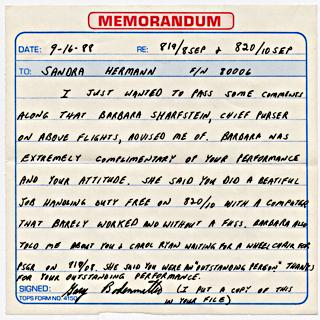 MEMORANDUM
DATE: 9-16-88 RE: 819/8SEP & 820/10SEP
TO: SANDRA HERMANN F/N 80006
I JUST WANTED TO PASS SOME COMMENTS
ALONG THAT BARBARA SHARFSTEIN, CHIEF PURSER
ON ABOVE FLIGHTS, ADVISED ME OF. BARBARA WAS
EXTREMELY COMPLIMENTARY OF YOUR PERFORMANCE
AND YOUR ATTITUDE. SHE SAID YOU DID A BEATIFUL
JOB HANDLING DUTY FREE ON 820/10 WITH A COMPUTER
THAT BARELY WORKED AND WITHOUT A FUSS. BARBARA ALSO
TOLD ME ABOUT YOU & CAROL RYAN WAITING FOR A WHEELCHAIR FOR
PSGR ON 819/08. SHE SAID YOU WERE AN "OUTSTANDING PERSON" THANKS
FOR YOUR OUTSTANDING PERFORMANCE.
SIGNED: Gary (I PUT A COPY OF THIS
TOPS FORM NO. 4150 IN YOUR FILE)